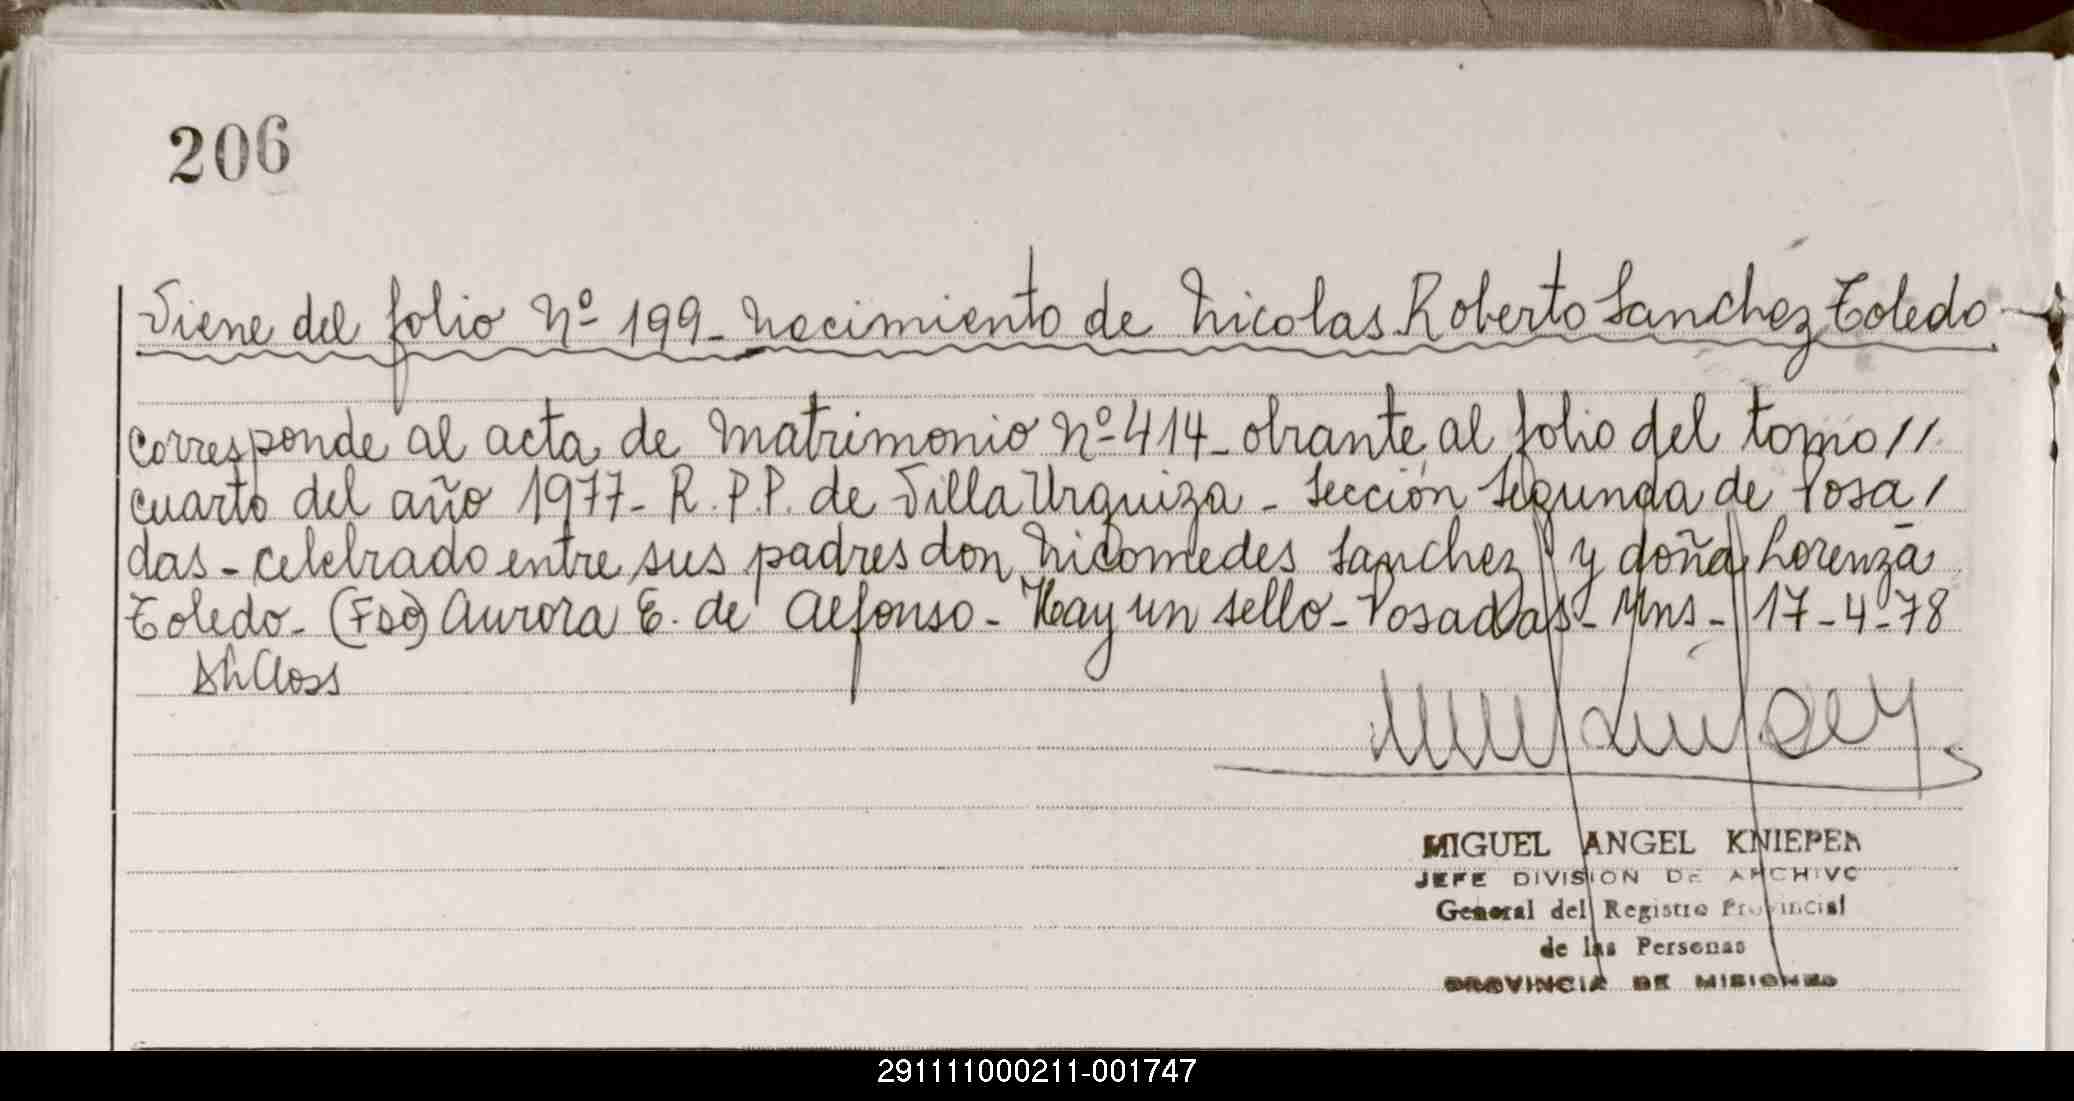 206
Viene del folio Nº 199 - Nacimiento de Nicolas Roberto Sanchez Toledo
corresponde al acta de Matrimonio Nº 414 - obrante al folio del tomo //
cuarto del año 1977 - R.P.P. de Villa Urquiza - Sección Segunda de Posa /
das - celebrado entre sus padres don Nicomedes Sanchez y doña Lorenza
Toledo - (Fdo) Aurora E. de Alfonso - Hay un sello - Posadas - Mns - 17-4-78
MIGUEL ANGEL KNIEPER
JEFE DIVISION DE ARCHIVO
General del Registro Provincial
de las Personas
PROVINCIA DE MISIONES
291111000211-001747